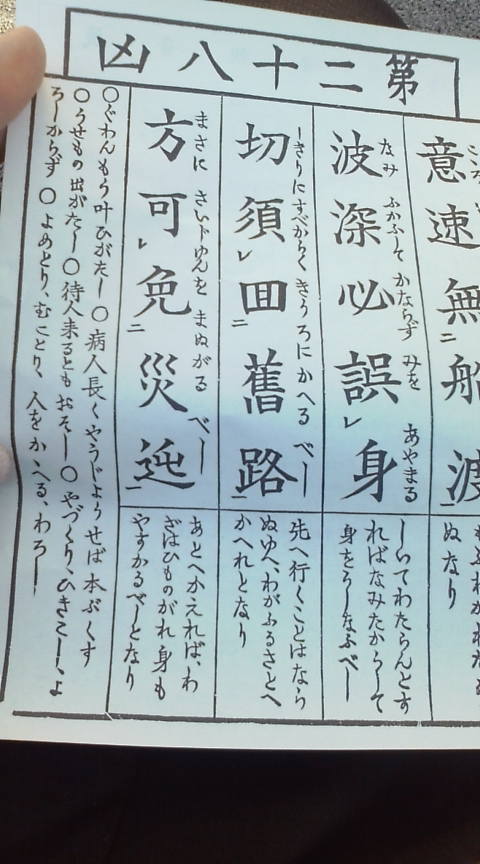 第二十八凶
意速無二船渡一
ぬなり
なみ ふかふして かならず みを あやまる
波深必誤レ身
しいてわたらんとす
ればなみたかうして
身をうしなふべし
しきりにすべからく きうろにかへる べし
切須レ回二舊路一
先へ行くことはなら
ぬゆへ、わがふるさとへ
かへれとなり
まさに さいじゆんを まぬがる べし
方可レ免二災迍一
あとへかえれば、わ
ざはひものがれ身も
やすかるべしとなり
○ぐわんもう叶ひがたし○病人長くやうじようせば本ぶくす
○うせもの出がたし○待人来るともおそし○やづくり、ひきこしよ
ろしからず○よめとり、むことり、人をかゝへる、わろし